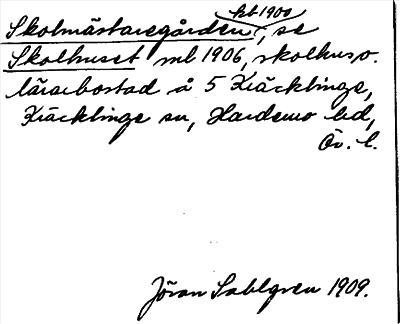 kbt 1900
Skolmästaregården, se
Skolhuset ml 1906, skolhus o.
lärarbostad å 5 Kräcklinge,
Kräcklinge sn, Hardemo hd,
Ör. l.
Jöran Sahlgren 1909.